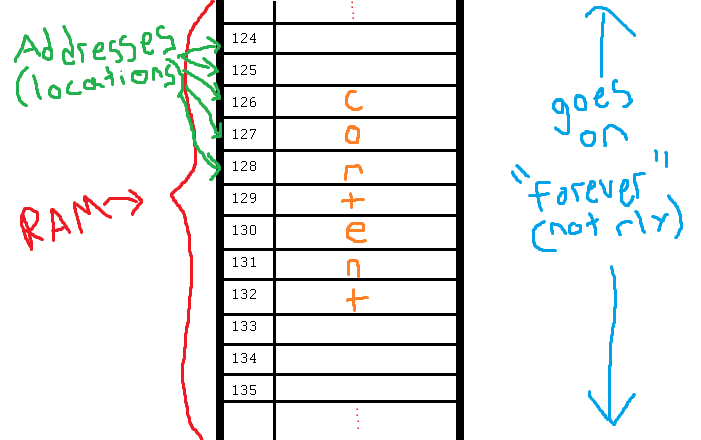 Addresses
(locations)
RAM
124
125
126 c
127 o
128 n
129 t
130 e
131 n
132 t
133
134
135
goes
on
"forever"
(not rly)